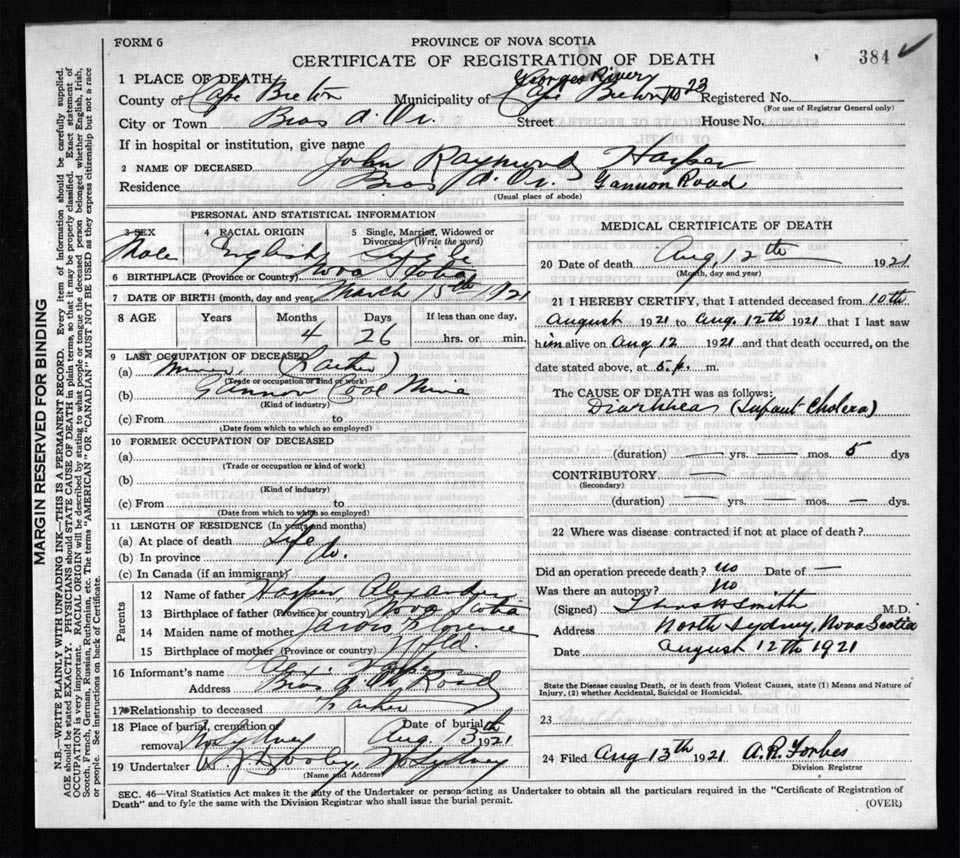 FORM 6
PROVINCE OF NOVA SCOTIA
CERTIFICATE OF REGISTRATION OF DEATH
384
1 PLACE OF DEATH
Georges River
County of Cape Breton Municipality of Cape Breton 23 Registered No.
(For use of Registrar General only)
City or Town Bras d. Or. Street House No.
If in hospital or institution, give name
2 NAME OF DECEASED John Raymond Harper
Residence Bras d. Or. Gannon Road
(Usual place of abode)
PERSONAL AND STATISTICAL INFORMATION
3 SEX 4 RACIAL ORIGIN 5 Single, Married, Widowed or Divorced (Write the word)
Male English Single
6 BIRTHPLACE (Province or Country) Nova Scotia
7 DATE OF BIRTH (month, day and year) March 15th 1921
8 AGE Years Months Days If less than one day,
4 26 hrs. or min.
9 LAST OCCUPATION OF DECEASED
(a) Miner, (Father)
(Trade or occupation or kind of work)
(b) Gannon Coal Mine
(Kind of industry)
(c) From to
(Date from which to which so employed)
10 FORMER OCCUPATION OF DECEASED
(a)
(Trade or occupation or kind of work)
(b)
(Kind of industry)
(c) From to
(Date from which to which so employed)
11 LENGTH OF RESIDENCE (In years and months)
(a) At place of death Life
(b) In province do.
(c) In Canada (if an immigrant)
Parents
12 Name of father Harper, Alexander
13 Birthplace of father (Province or country) Nova Scotia
14 Maiden name of mother Florence
15 Birthplace of mother (Province or country) Nfld.
16 Informant's name Alex. Harper
Address Bras d. Or Road
17 Relationship to deceased Father
18 Place of burial, cremation or removal No Sydney Date of burial Aug. 13th 1921
19 Undertaker Dooley, No Sydney
(Name and Address)
MEDICAL CERTIFICATE OF DEATH
20 Date of death Aug, 12th 1921
(Month, day and year)
21 I HEREBY CERTIFY, that I attended deceased from 10th
August 1921 to Aug. 12th 1921 that I last saw
him alive on Aug 12 1921 and that death occurred, on the
date stated above, at 5. p. m.
The CAUSE OF DEATH was as follows:
Diarhhea (Infant Cholera)
(duration) — yrs. — mos. 5 dys
CONTRIBUTORY —
(Secondary)
(duration) — yrs. — mos. — dys.
22 Where was disease contracted if not at place of death?
Did an operation precede death? no Date of —
Was there an autopsy? no
(Signed) Thos H Smith M.D.
Address North Sydney, Nova Scotia
Date August 12th 1921
State the Disease causing Death, or in death from Violent Causes, state (1) Means and Nature of
Injury, (2) whether Accidental, Suicidal or Homicidal.
23
24 Filed Aug 13th 1921 A.R. Forbes
Division Registrar
SEC. 46—Vital Statistics Act makes it the duty of the Undertaker or person acting as Undertaker to obtain all the particulars required in the "Certificate of Registration of
Death" and to fyle the same with the Division Registrar who shall issue the burial permit.
(OVER)
MARGIN RESERVED FOR BINDING
N.B.—WRITE PLAINLY WITH UNFADING INK—THIS IS A PERMANENT RECORD. Every item of information should be carefully supplied.
AGE should be stated EXACTLY. PHYSICIANS should STATE CAUSE OF DEATH in plain terms, so that it may be properly classified. Exact statement of
OCCUPATION is very important. RACIAL ORIGIN will be described by stating to what people or tongue the deceased person belonged whether English, Irish,
Scotch, French, German, Russian, Ruthenian, etc. The terms "AMERICAN" OR "CANADIAN" MUST NOT BE USED as they express citizenship but not a race
or people. See instructions on back of Certificate.